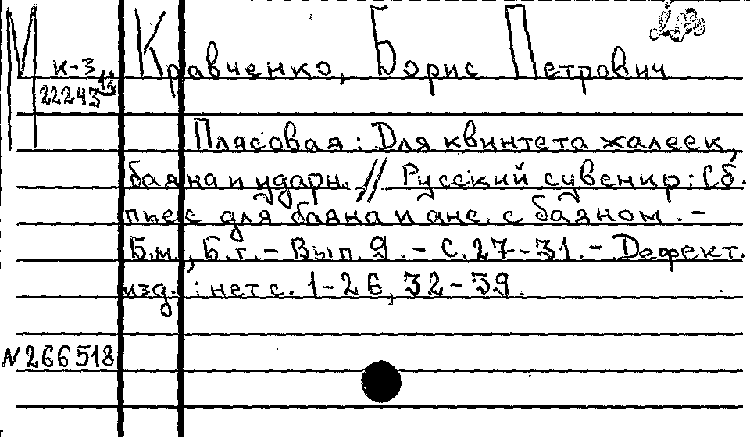 М
Кравченко, Борис Петрович
к-3
22243
Плясовая: Для квинтета жалеек,
баяна и ударн. // Русский сувенир: Сб.
пьес для баяна и анс. с баяном. -
Б.м., Б.г. - Вып. 9. - С. 27-31. - Дефект.
изд.: нет с. 1-26, 32-59.
N266518